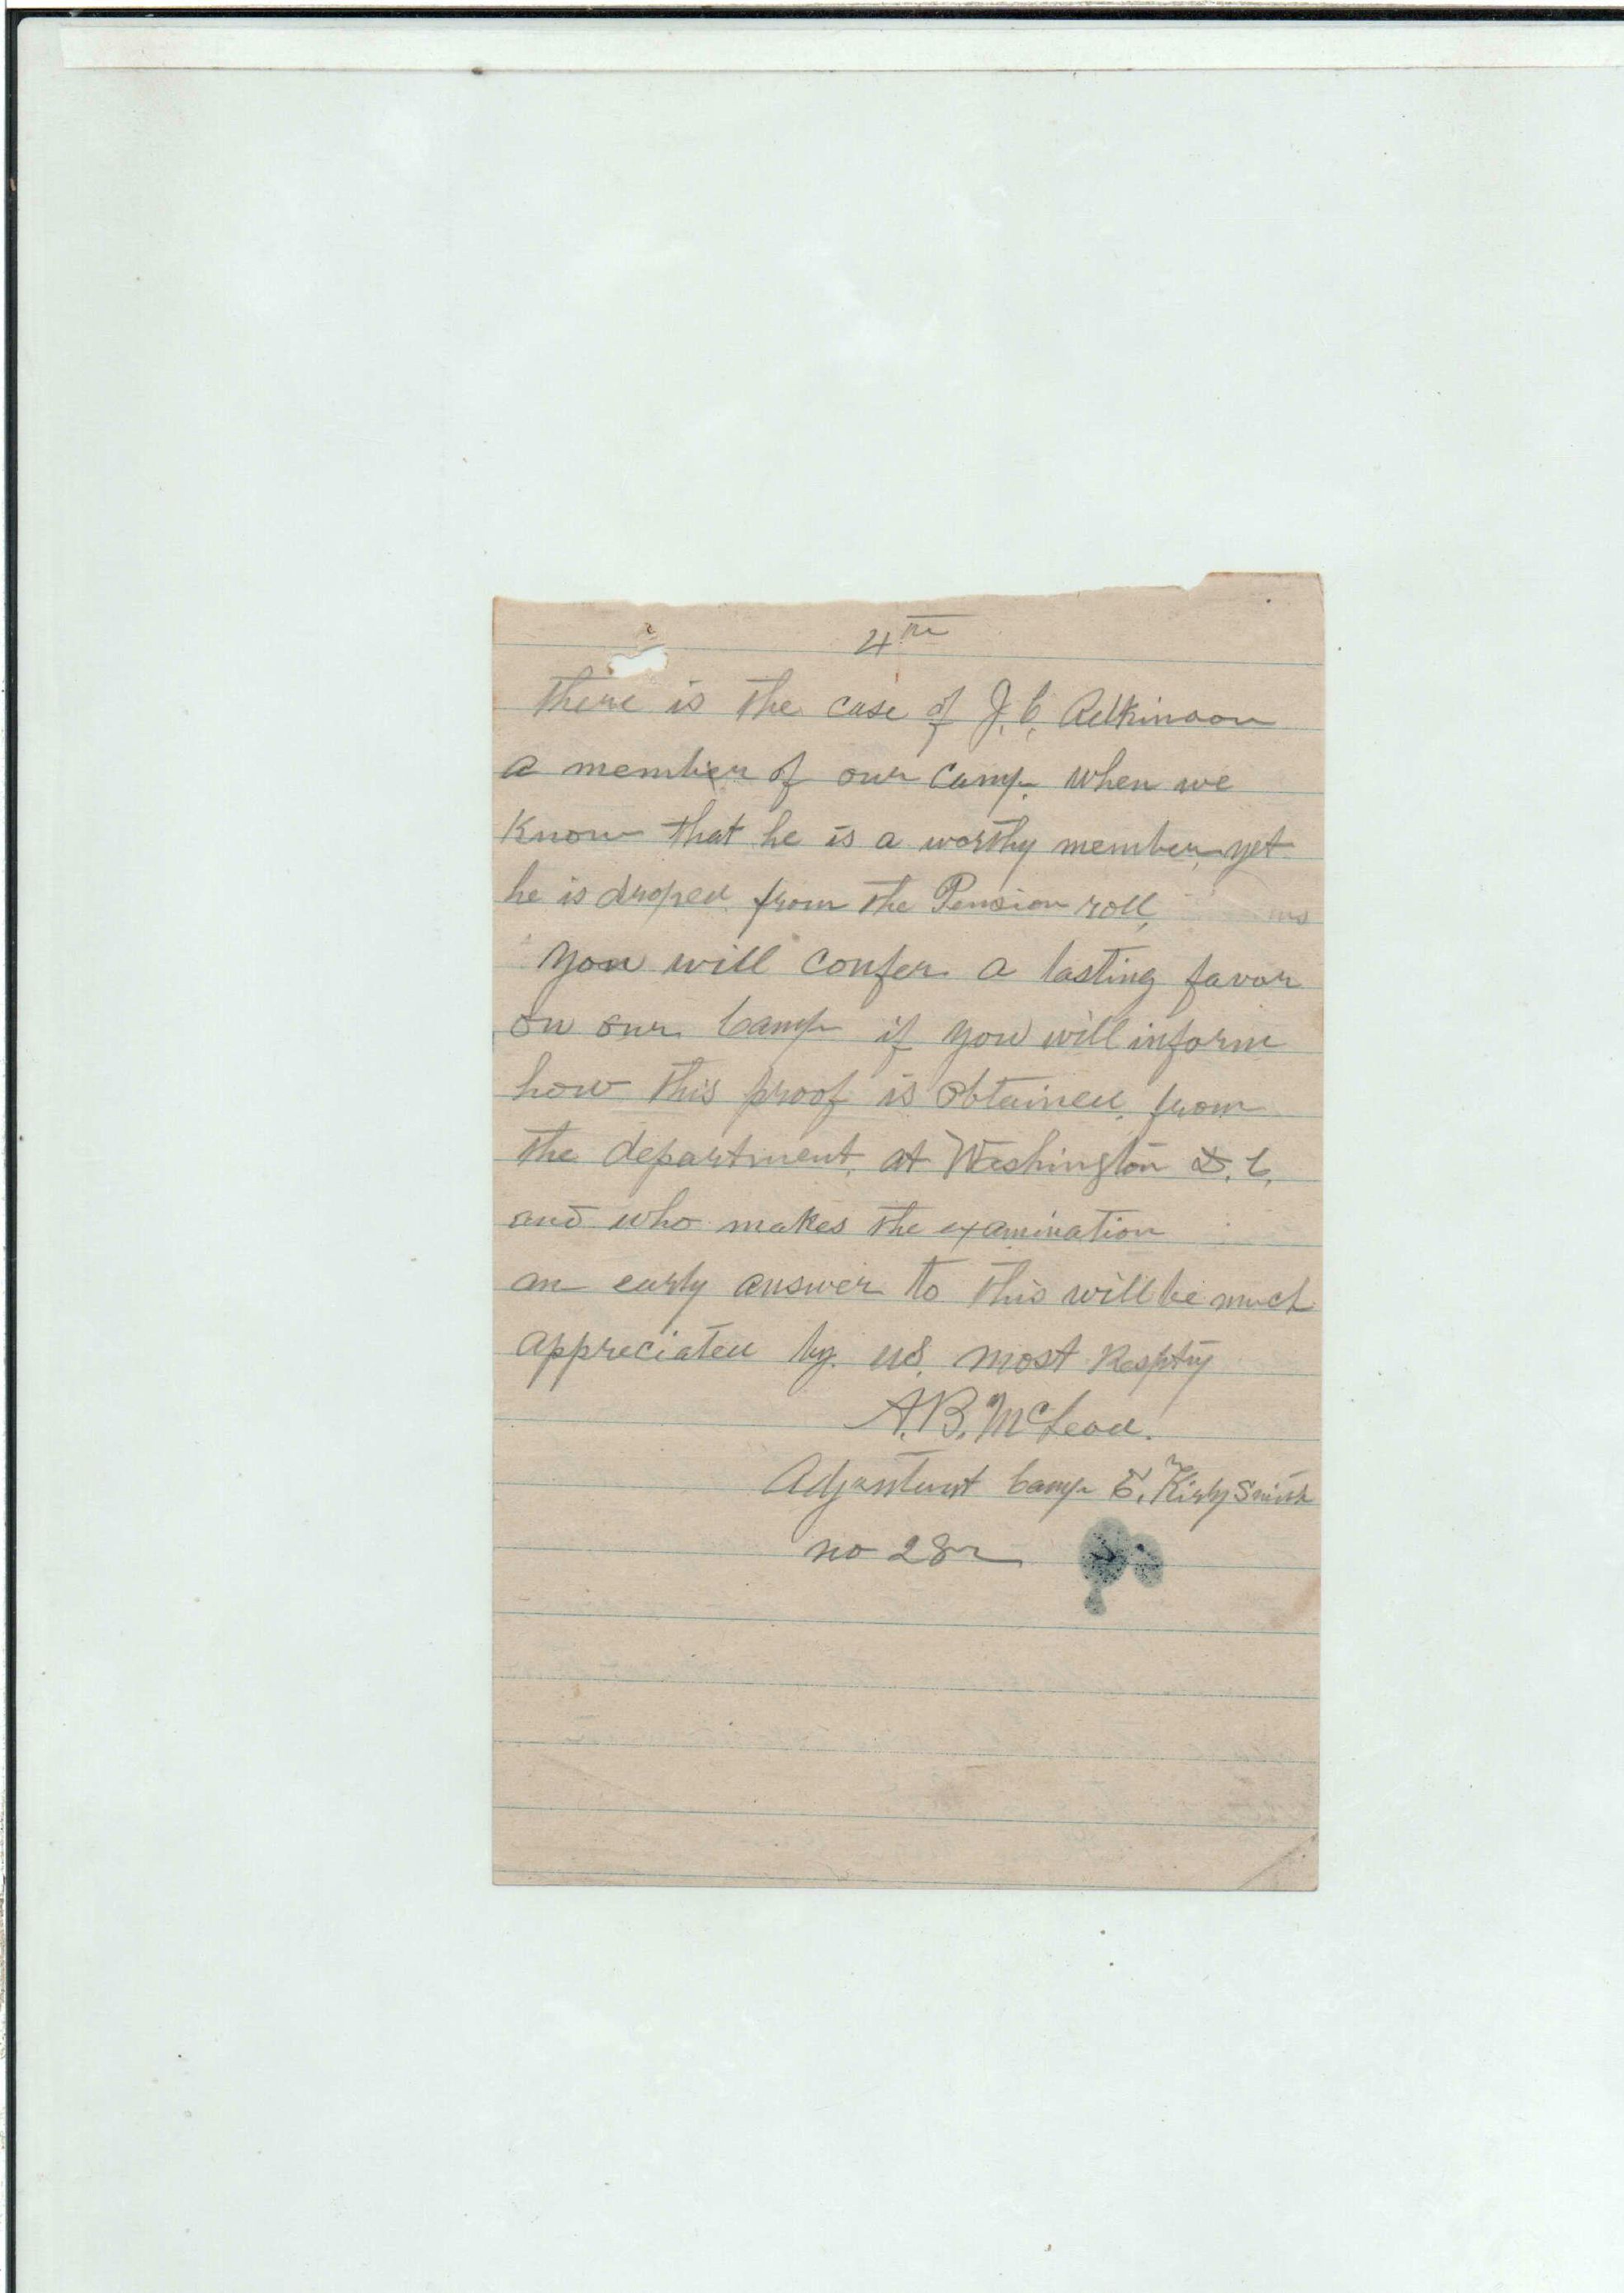 4th
there is the case of J. C. Adkinson
a member of our camp. when we
Know that he is a worthy member, yet
he is droped from the Pension roll,
you will confer a lasting favor
on our Camp if you will inform
how this proof is obtained from
the department, at Washington D. C.
and who makes the examination
an early answer to this will be much
appreciated by us. most Resptly
A. B. McLeod.
Adjustunt Camp E. Kirby Smith
no 282